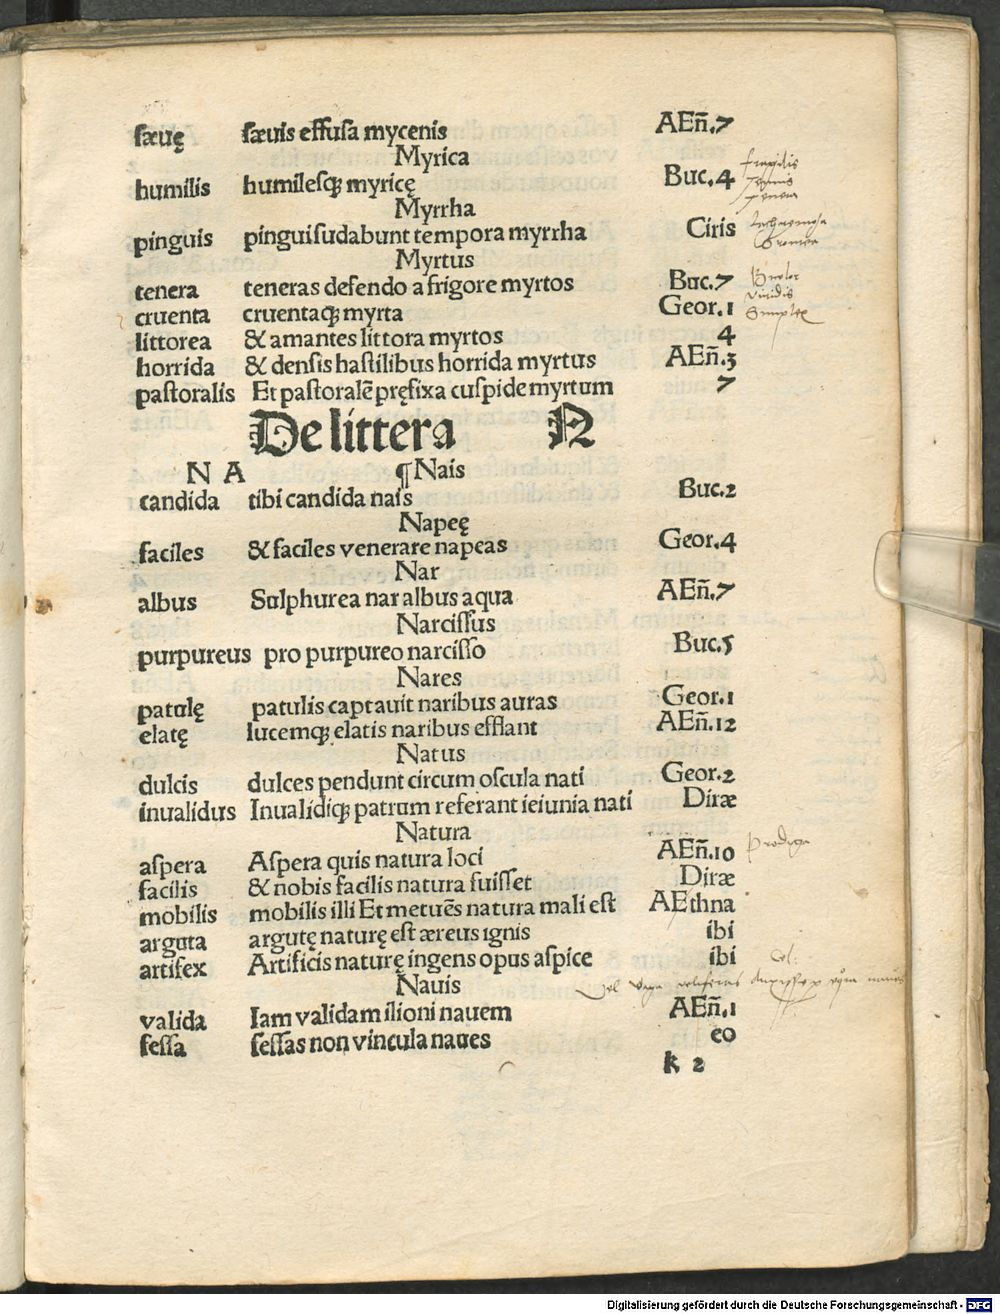 sæuę sæuis effusa mycenis AEñ.7
Myrica
humilis humilesq; myricę Buc.4
Myrrha
pinguis pingui sudabunt tempora myrrha Ciris
Myrtus
tenera teneras defendo a frigore myrtos Buc.7
cruenta cruentaq; myrta Geor.1
littorea & amantes littora myrtos 4
horrida & densis hastilibus horrida myrtus AEñ.3
pastoralis Et pastoralē pręfixa cuspide myrtum 7
De littera N
N A ¶Nais
candida tibi candida nais Buc.2
Napeę
faciles & faciles venerare napeas Geor.4
Nar
albus Sulphurea nar albus aqua AEñ.7
Narcissus
purpureus pro purpureo narcisso Buc.5
Nares
patulę patulis captauit naribus auras Geor.1
elatę lucemq; elatis naribus efflant AEñ.12
Natus
dulcis dulces pendunt circum oscula nati Geor.2
inualidus Inualidiq; patrum referant ieiunia nati Diræ
Natura
aspera Aspera quis natura loci AEñ.10
Prodiga
facilis & nobis facilis natura fuisset Diræ
mobilis mobilis illi Et metuēs natura mali est AEthna
arguta argutę naturę est æreus ignis ibi
artifex Artificis naturę ingens opus aspice ibi
Nauis
valida Iam validam ilioni nauem AEñ.1
fessa fessas non vincula naues eo
k 2
Digitalisierung gefördert durch die Deutsche Forschungsgemeinschaft - DFG